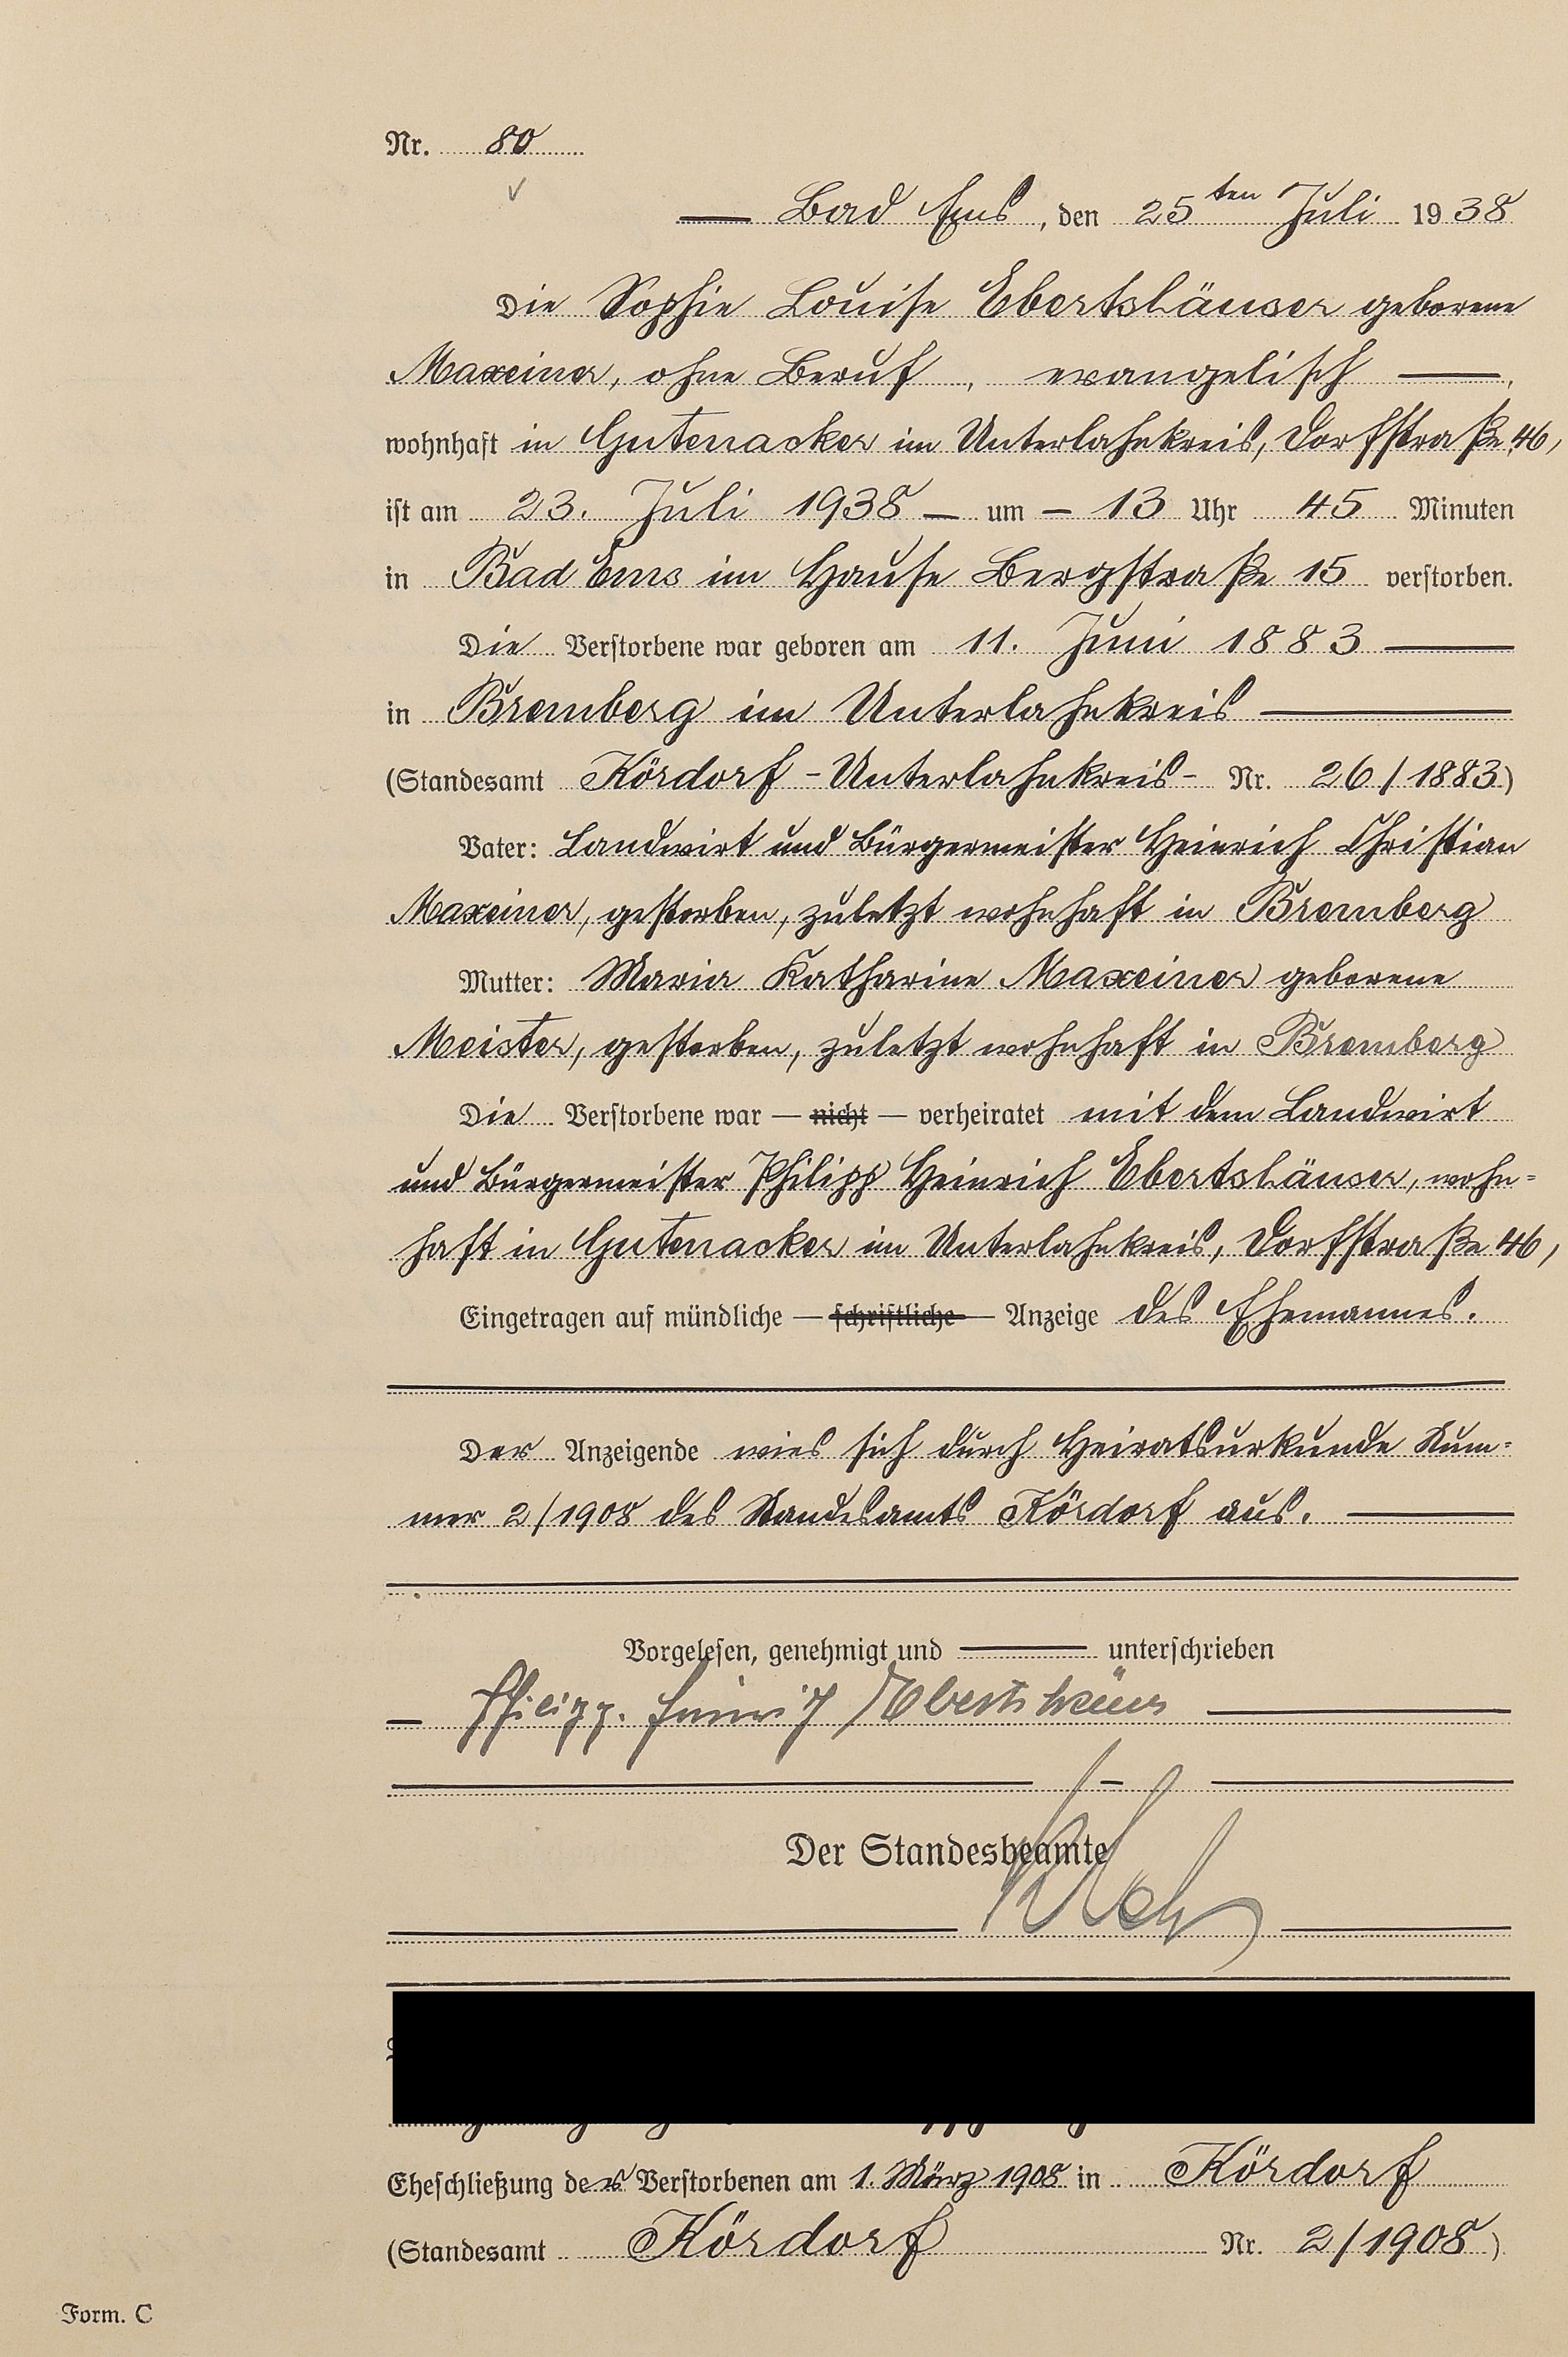 Nr. 80
Bad Ems, den 25ten Juli 1938
Die Sophie Louise Ebertshäuser geborene
Maxeiner, ohne Beruf, evangelisch —,
wohnhaft in Gutenacker im Unterlahnkreis, Dorfstraße 46,
ist am 23. Juli 1938 — um — 13 Uhr 45 Minuten
in Bad Ems im Hause Bergstraße 15 verstorben.
Die Verstorbene war geboren am 11. Juni 1883 —
in Bremberg im Unterlahnkreis —
(Standesamt Kördorf - Unterlahnkreis - Nr. 26/1883)
Vater: Landwirt und Bürgermeister Heinrich Christian
Maxeiner, gestorben, zuletzt wohnhaft in Bremberg
Mutter: Maria Katharine Maxeiner geborene
Meister, gestorben, zuletzt wohnhaft in Bremberg
Die Verstorbene war — nicht — verheiratet mit dem Landwirt
und Bürgermeister Philipp Heinrich Ebertshäuser, wohn=
haft in Gutenacker im Unterlahnkreis, Dorfstraße 46,
Eingetragen auf mündliche — schriftliche — Anzeige des Ehemannes.
Der Anzeigende wies sich durch Heiratsurkunde Num=
mer 2/1908 des Standesamts Kördorf aus. —
Vorgelesen, genehmigt und — unterschrieben
Philipp. Heinrich Ebertshäuser
Der Standesbeamte
Eheschließung der Verstorbenen am 1. März 1908 in Kördorf
(Standesamt Kördorf Nr. 2/1908)
Form. C